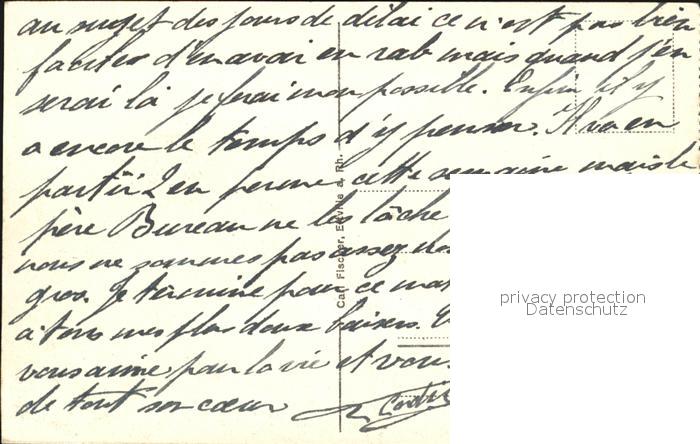 au sujet des jours de délai ce n'est pas bien
facile d'en avoir en rab mais quand j'en
serai là je ferai mon possible. Enfin il y
a encore le temps d'y penser. Il va en
partir 2 en perme cette semaine mais le
père Bureau ne les lâche
nous ne sommes pas assez des
gros. Je termine pour ce
à tous mes plus doux baisers.
vous aime pour la vie et vous
de tout son cœur
Carl Fischer, a. Rh.
privacy protection
Datenschutz